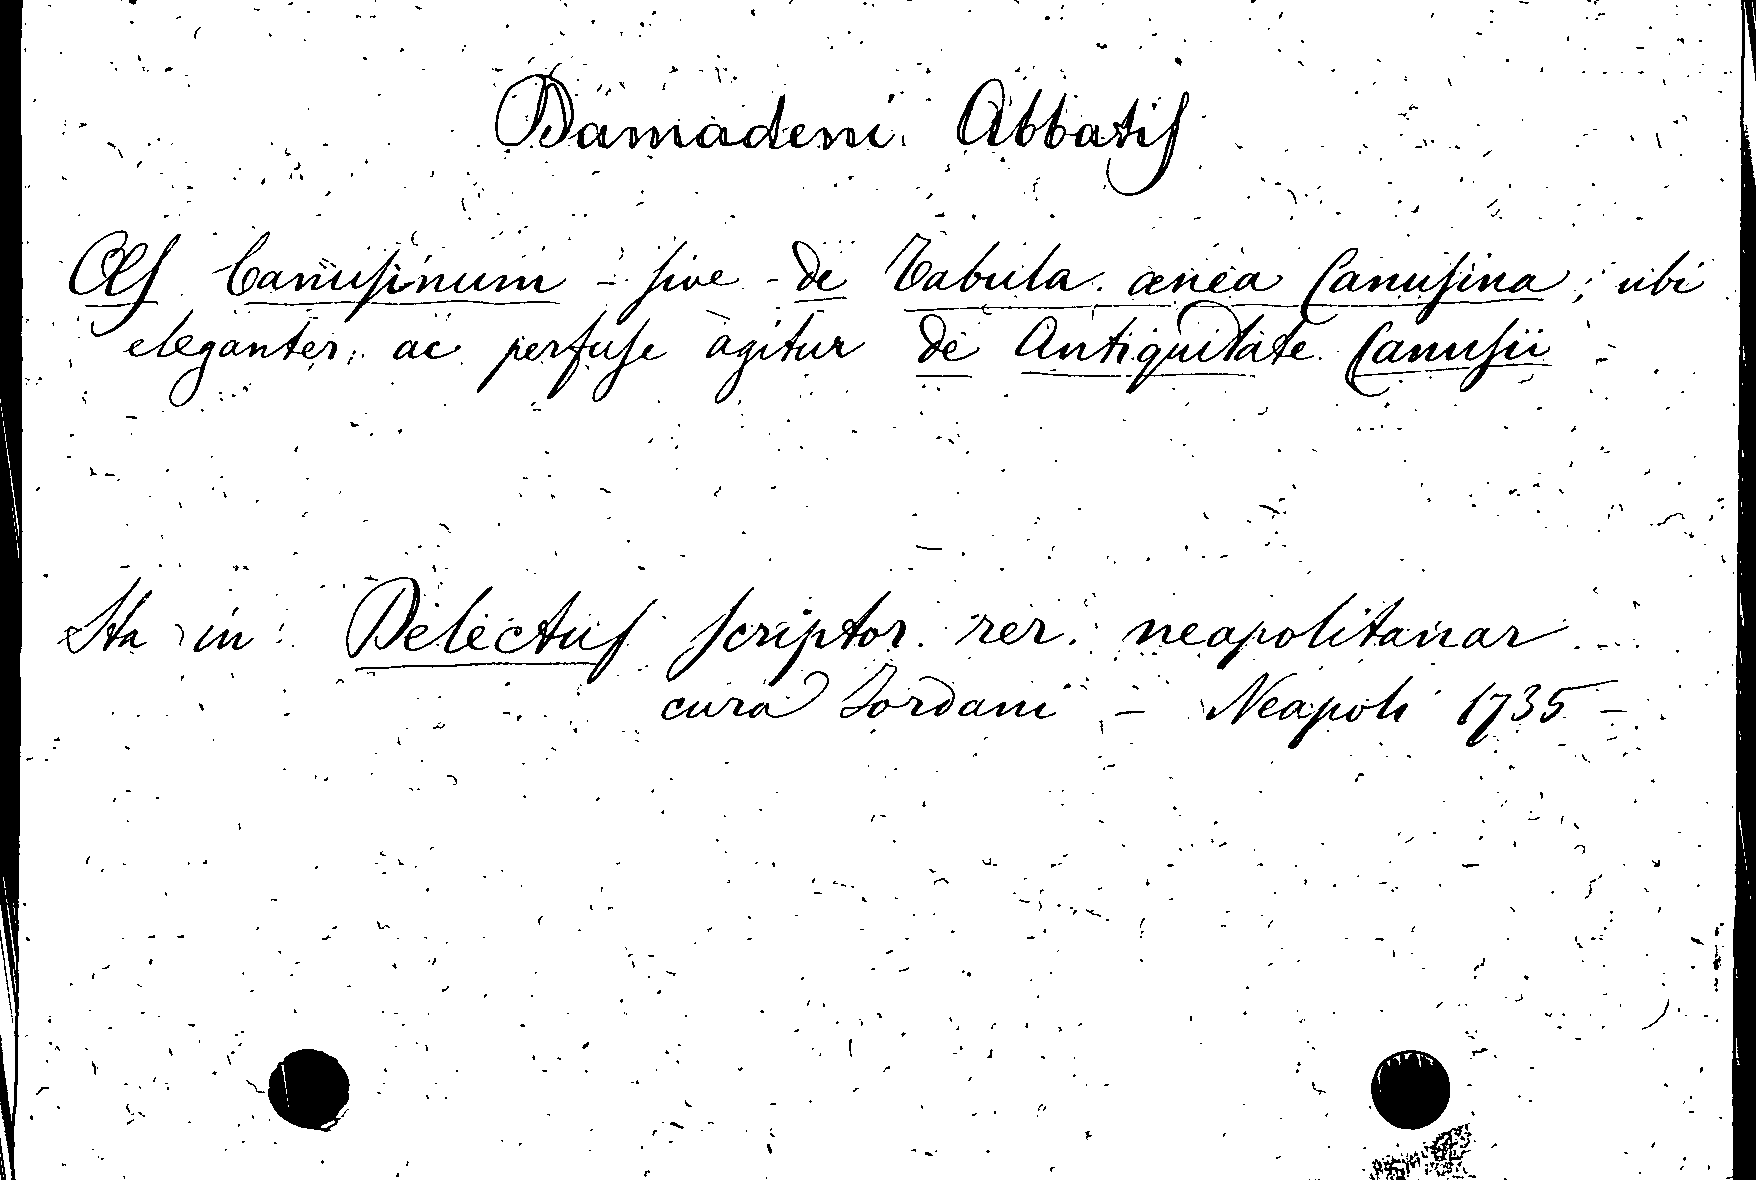 Damadeni Abbatis
Æs Canusinum - sive - de Tabula ænea Canusina; ubi
eleganter, ac perfuse agitur de Antiquitate Canusii -
Sta in: Delectus scriptor. rer. neapolitanar
cura Jordani - Neapoli 1735 -